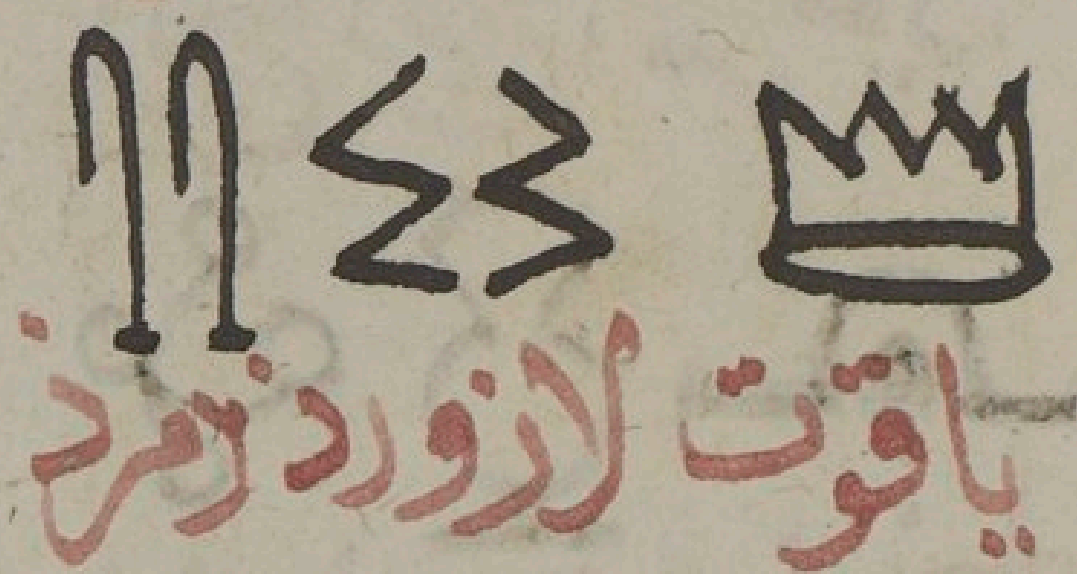 ياقوت لازورد زمرذ